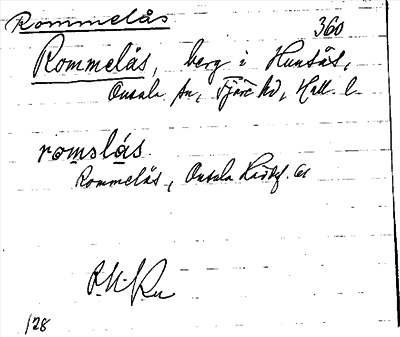 Rommelås
360
Rommelås, berg i Hunsås,
Onsala sn, Fjäre hd, Hall. l.
romslås.
Rommelås, Onsala
128